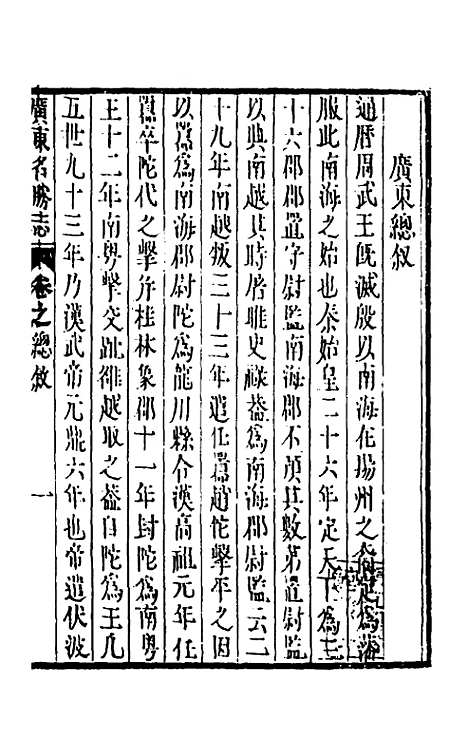 廣東總叙
通曆周武王旣滅殷以南海在揚州之裔定為藩
服此南海之始也秦始皇二十六年定天下為三
十六郡郡置守尉監南海郡不頂其數第置尉監
以典南越其時屠睢史祿葢為南海郡尉監云二
十九年南越叛三十三年遣任囂趙佗擊平之因
以囂為南海郡尉陀為龍川縣令漢高祖元年任
囂卒陀代之擊并桂林象郡十一年封陀為南粤
王十二年南粤擊交趾雒越取之葢自陀為王凡
五世九十三年乃漢武帝元鼎六年也帝遣伏波
廣東名勝志 卷之總叙 一